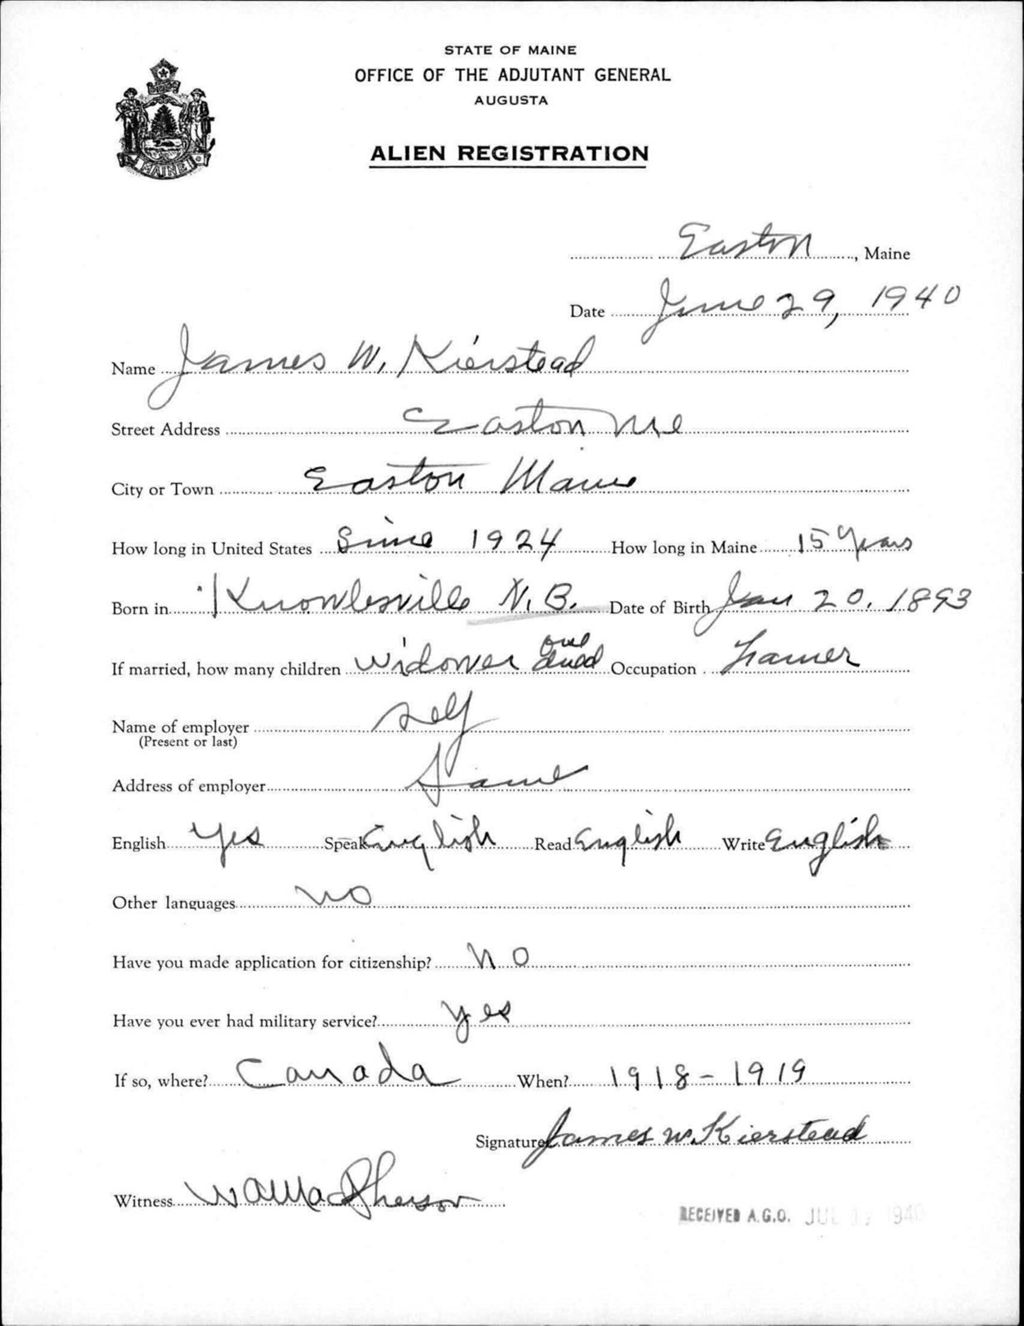 STATE OF MAINE
OFFICE OF THE ADJUTANT GENERAL
AUGUSTA
ALIEN REGISTRATION
MAINE
Easton, Maine
Date June 29, 1940
Name James W. Kierstead
Street Address Easton Me
City or Town Easton Maine
How long in United States Since 1924 How long in Maine 15 Years
Born in Knowlesville N.B. Date of Birth Jan 20, 1893
If married, how many children widower one Occupation Farmer
Name of employer self
(Present or last)
Address of employer Same
English Yes Speak English Read English Write English
Other languages no
Have you made application for citizenship? No
Have you ever had military service? yes
If so, where? Canada When? 1918-1919
Signature James W. Kierstead
Witness MacPherson
RECEIVED A.G.O. JUL 1940